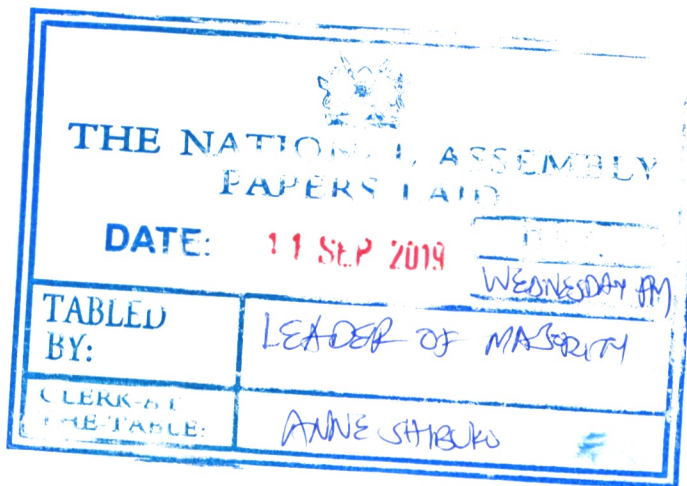 THE NATIONAL ASSEMBLY
PAPERS LAID
DATE: 11 SEP 2019
WEDNESDAY PM
TABLED BY: LEADER OF MAJORITY
CLERK-AT THE-TABLE: ANNE SHIBUKO